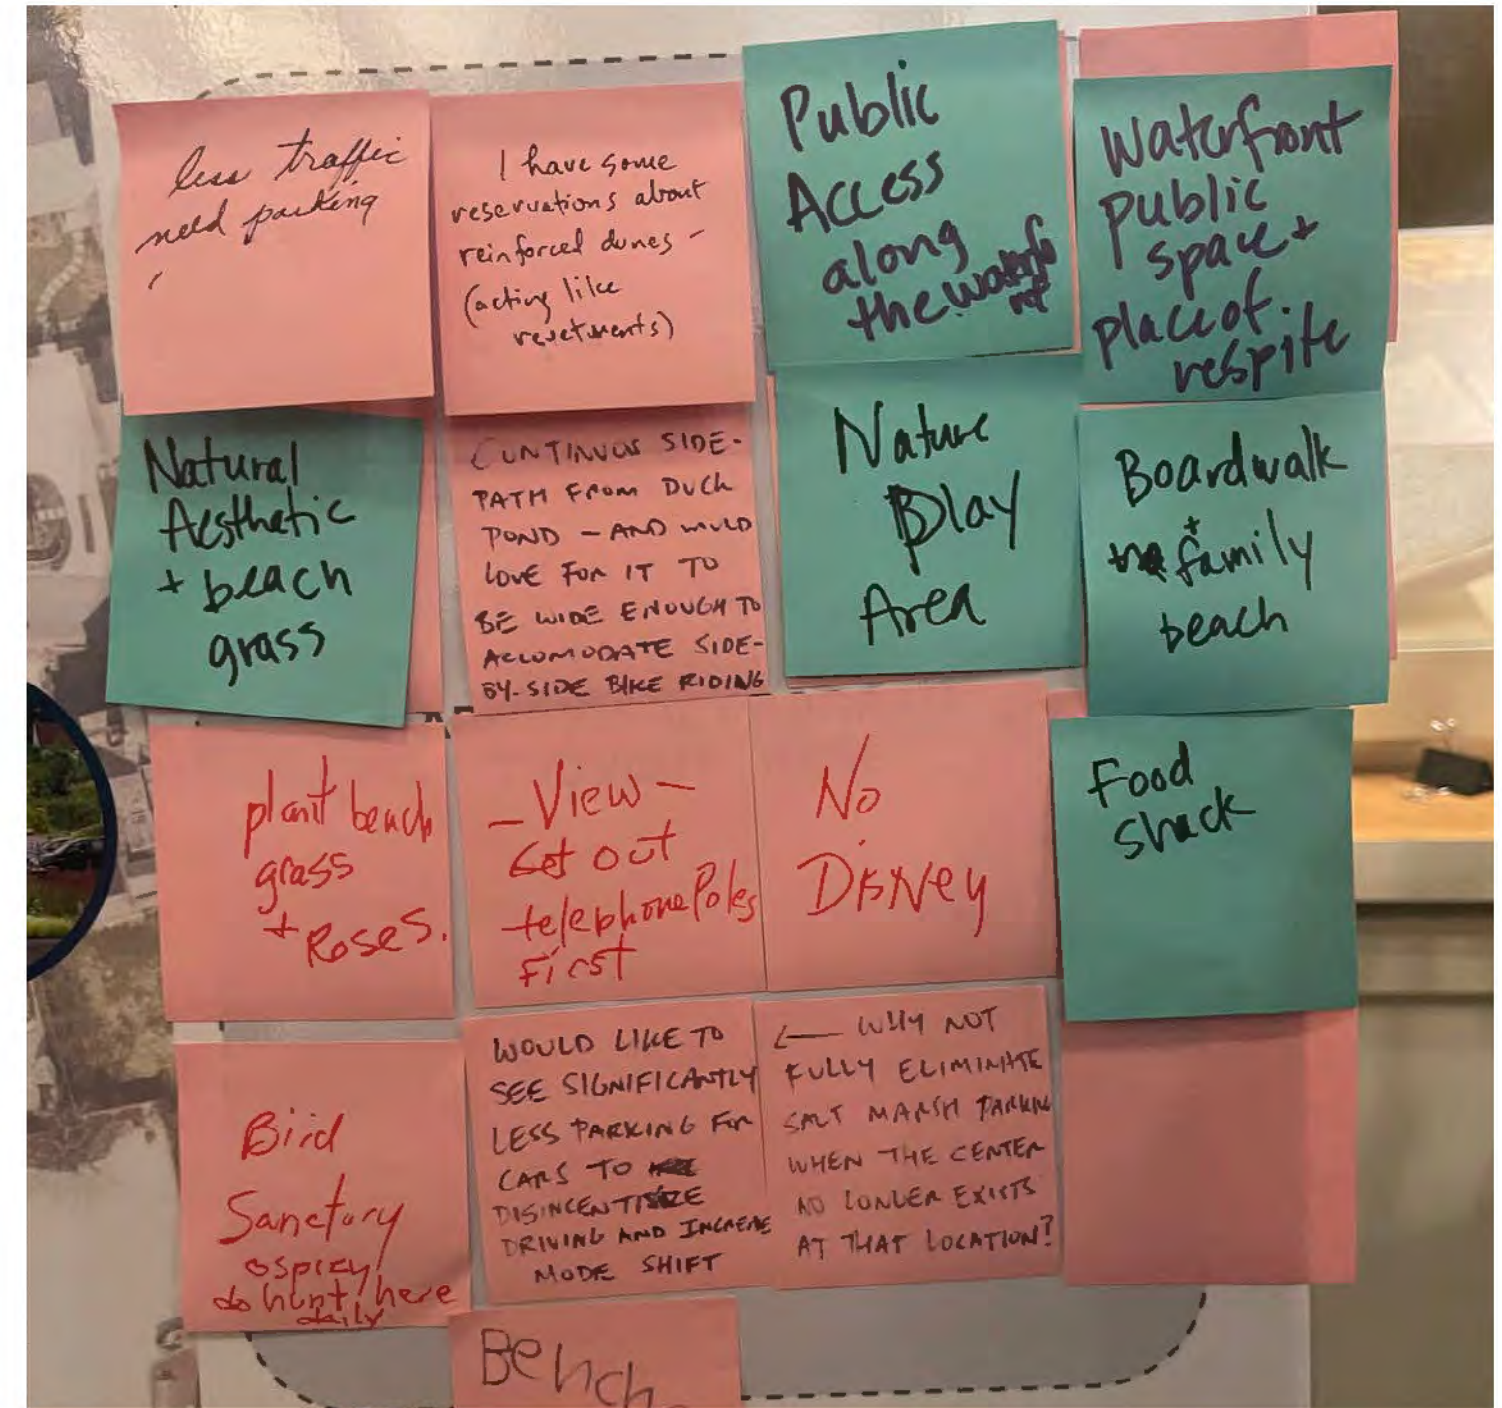 less traffic
need parking
I have some
reservations about
reinforced dunes -
(acting like
revetments)
Public
Access
along
the waterfront
Waterfront
Public
space +
place of
respite
Natural
Aesthetic
+ beach
grass
CONTINUOS SIDE-
PATH FROM DUCK
POND - AND WOULD
LOVE FOR IT TO
BE WIDE ENOUGH TO
ACCOMODATE SIDE-
BY-SIDE BIKE RIDING
Nature
Play
Area
Boardwalk
+
family
beach
plant beach
grass
+ Roses.
- View -
Get out
telephone Poles
First
No
Disney
Food
shack
Bird
Sanctory
osprey
do hunt here
daily
WOULD LIKE TO
SEE SIGNIFICANTLY
LESS PARKING FOR
CARS TO
DISINCENTIVIZE
DRIVING AND INCREASE
MODE SHIFT
← WHY NOT
FULLY ELIMINATE
SALT MARSH PARKING
WHEN THE CENTER
NO LONGER EXISTS
AT THAT LOCATION?
Bench